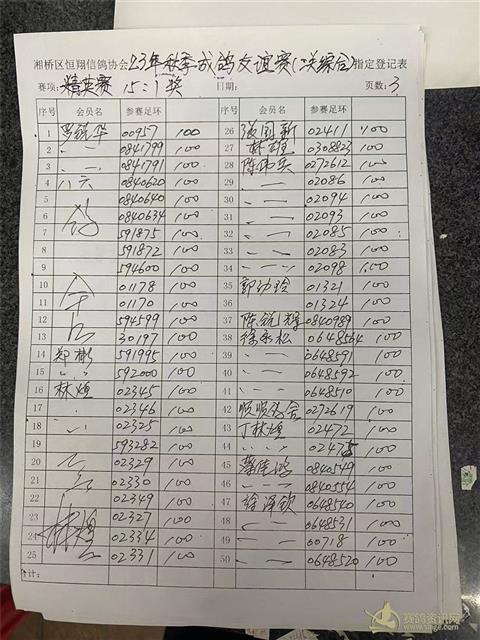 湘桥区恒翔信鸽协会23年秋季成鸽友谊赛(二关综合)指定登记表
赛项:精英赛 15:1奖 日期: 页数:3
序号 会员名 参赛足环 序号 会员名 参赛足环
1 00957 100 26 02411 100
2 〃 0841799 100 27 林雄 0308823 100
3 〃 0841791 100 28 0272612 100
4 八六 0840620 100 29 〃 02086 100
5 0840640 100 30 〃 02094 100
6 0840634 100 31 〃 02093 100
7 591875 100 32 〃 02085 100
8 591872 100 33 〃 02083 100
9 594600 100 34 〃 02098 100
10 01178 100 35 01321 100
11 01170 100 36 01324 100
12 594599 100 37 0840989 100
13 30197 100 38 徐永松 0648564 100
14 郑彬 591995 100 39 〃 0648591 100
15 〃 592000 100 40 〃 0648592 100
16 林煌 02345 100 41 〃 0648510 100
17 02346 100 42 0272619 100
18 〃 02325 100 43 丁林煌 02472 100
19 593282 100 44 〃 02475 100
20 02329 100 45 0840549 100
21 02330 100 46 〃 0840554 100
22 02349 100 47 0648540 100
23 02327 100 48 〃 0648531 100
24 林煌 02334 100 49 〃 00718 100
25 02331 100 50 〃 0648520 100
合计:
赛鸽资讯网